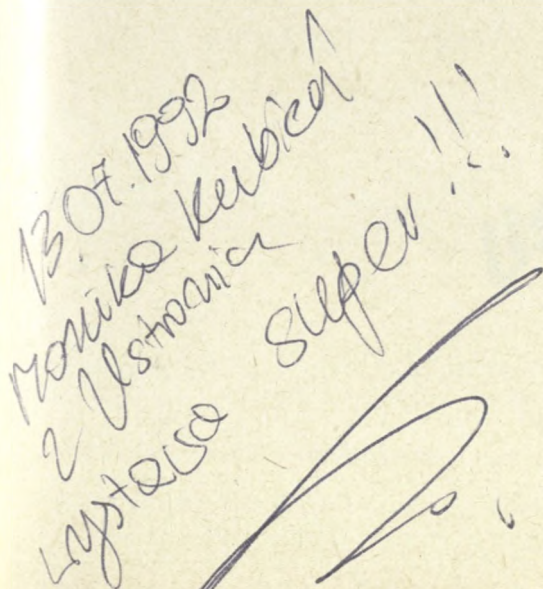 13.07.1992
Monika Kubica
z Ustronia
wystawa super!!!